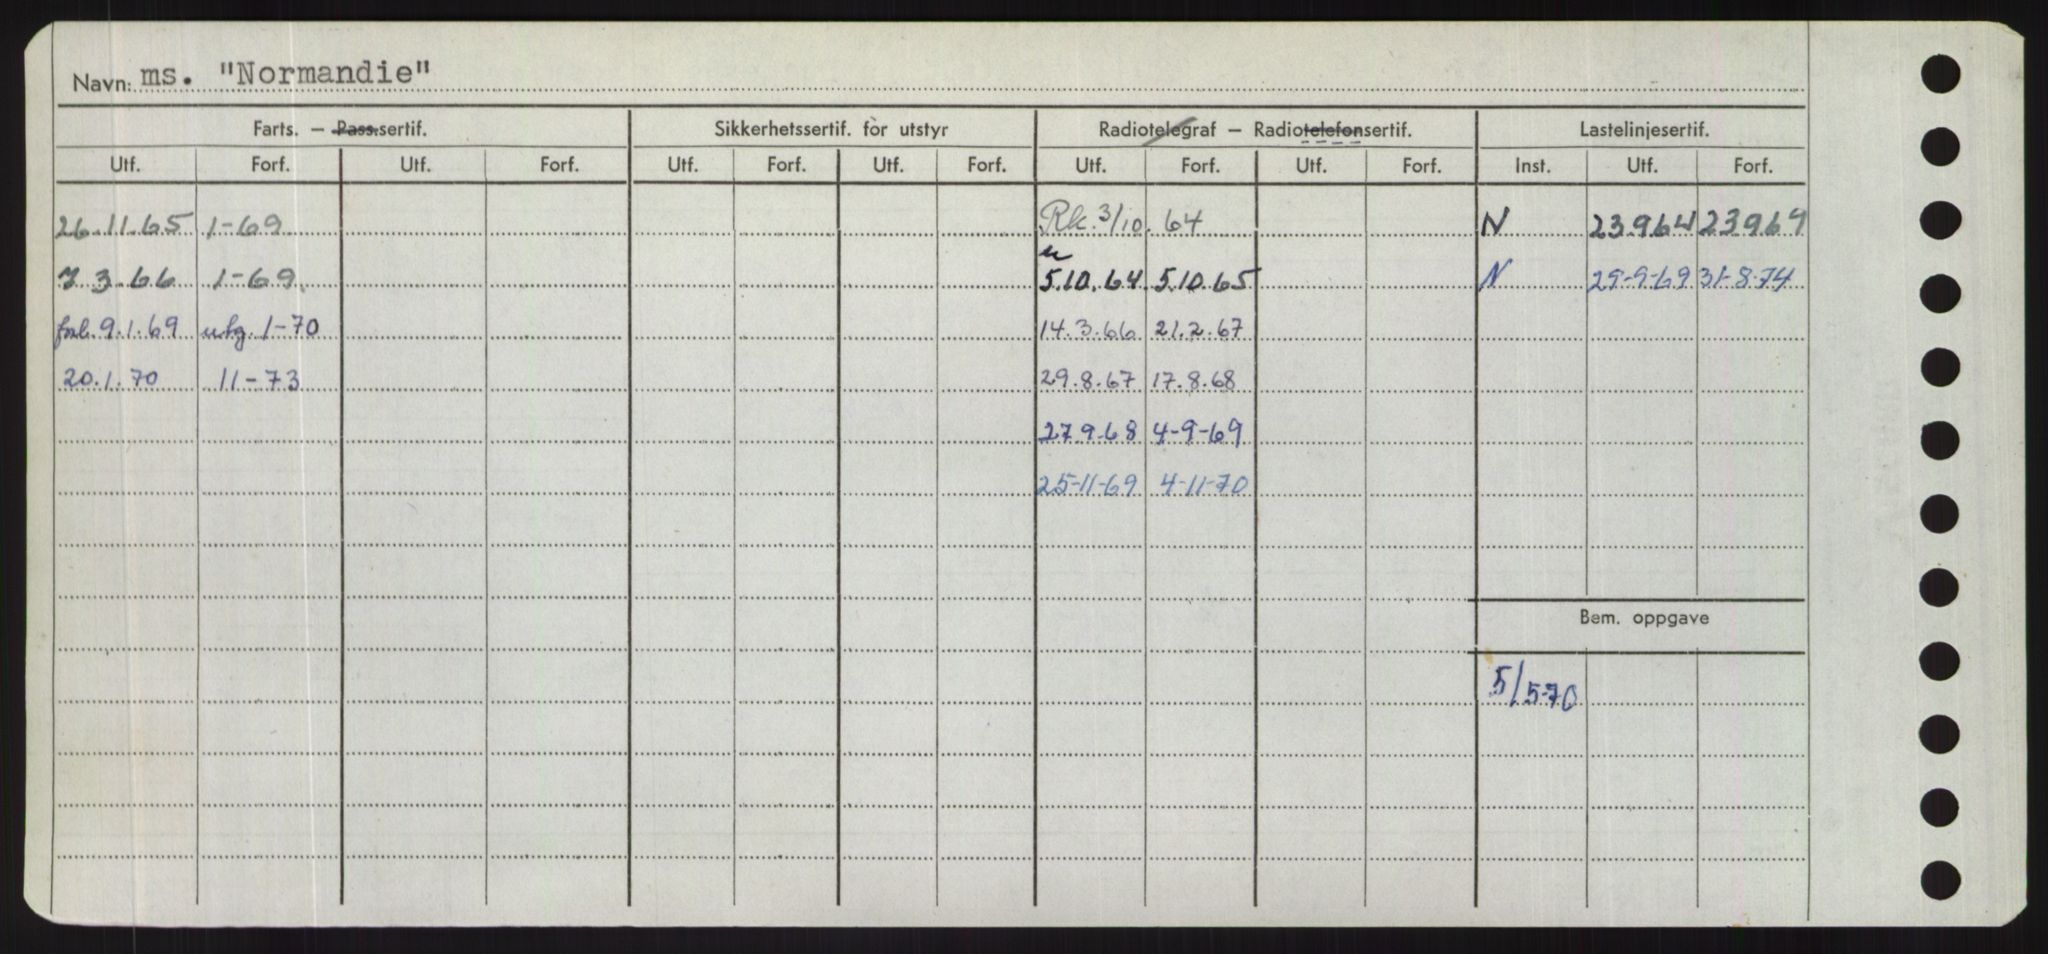 Navn: ms. "Normandie"
Farts. – Pass.sertif. Sikkerhetssertif. for utstyr Radiotelegraf – Radiotelefonsertif. Lastelinjesertif.
Utf. Forf. Utf. Forf. Utf. Forf. Utf. Forf. Utf. Forf. Utf. Forf. Inst. Utf. Forf.
26.11.65 1-69 Rk. 3/10. 64 N 23.9.64 23.9.69
7.3.66 1-69. 5.10.64 5.10.65 N 29-9-69 31-8-74
forl. 9.1.69 utg. 1-70 14.3.66 21.2.67
20.1.70 11-73 29.8.67 17.8.68
27.9.68 4-9-69
25-11-69 4-11-70
Bem. oppgave
5/5-70